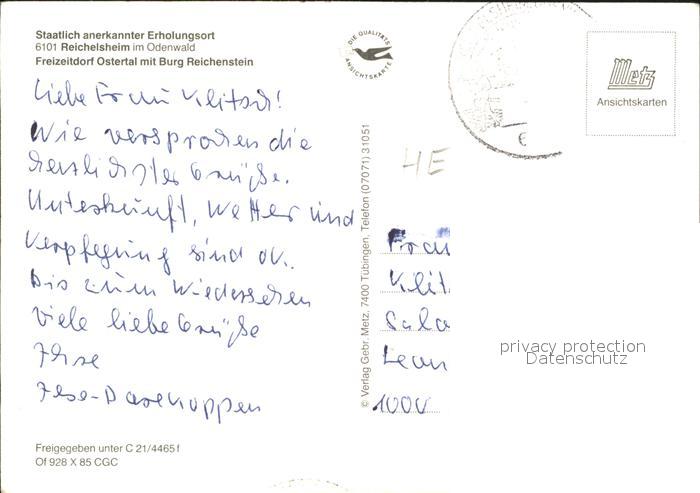 Staatlich anerkannter Erholungsort
6101 Reichelsheim im Odenwald
Freizeitdorf Ostertal mit Burg Reichenstein
Liebe Frau Klitsch!
Wie versprochen die
herzlichsten Grüße.
Unterkunft, Wetter und
Verpflegung sind ok.
Bis zum Wiedersehen
viele liebe Grüße
Ihre
Freigegeben unter C 21/4465 f
Of 928 X 85 CGC
DIE QUALITÄTS
ANSICHTSKARTE
© Verlag Gebr. Metz, 7400 Tübingen, Telefon (07071) 31051
4E
Metz
Ansichtskarten
Frau
Klit
privacy protection
Datenschutz